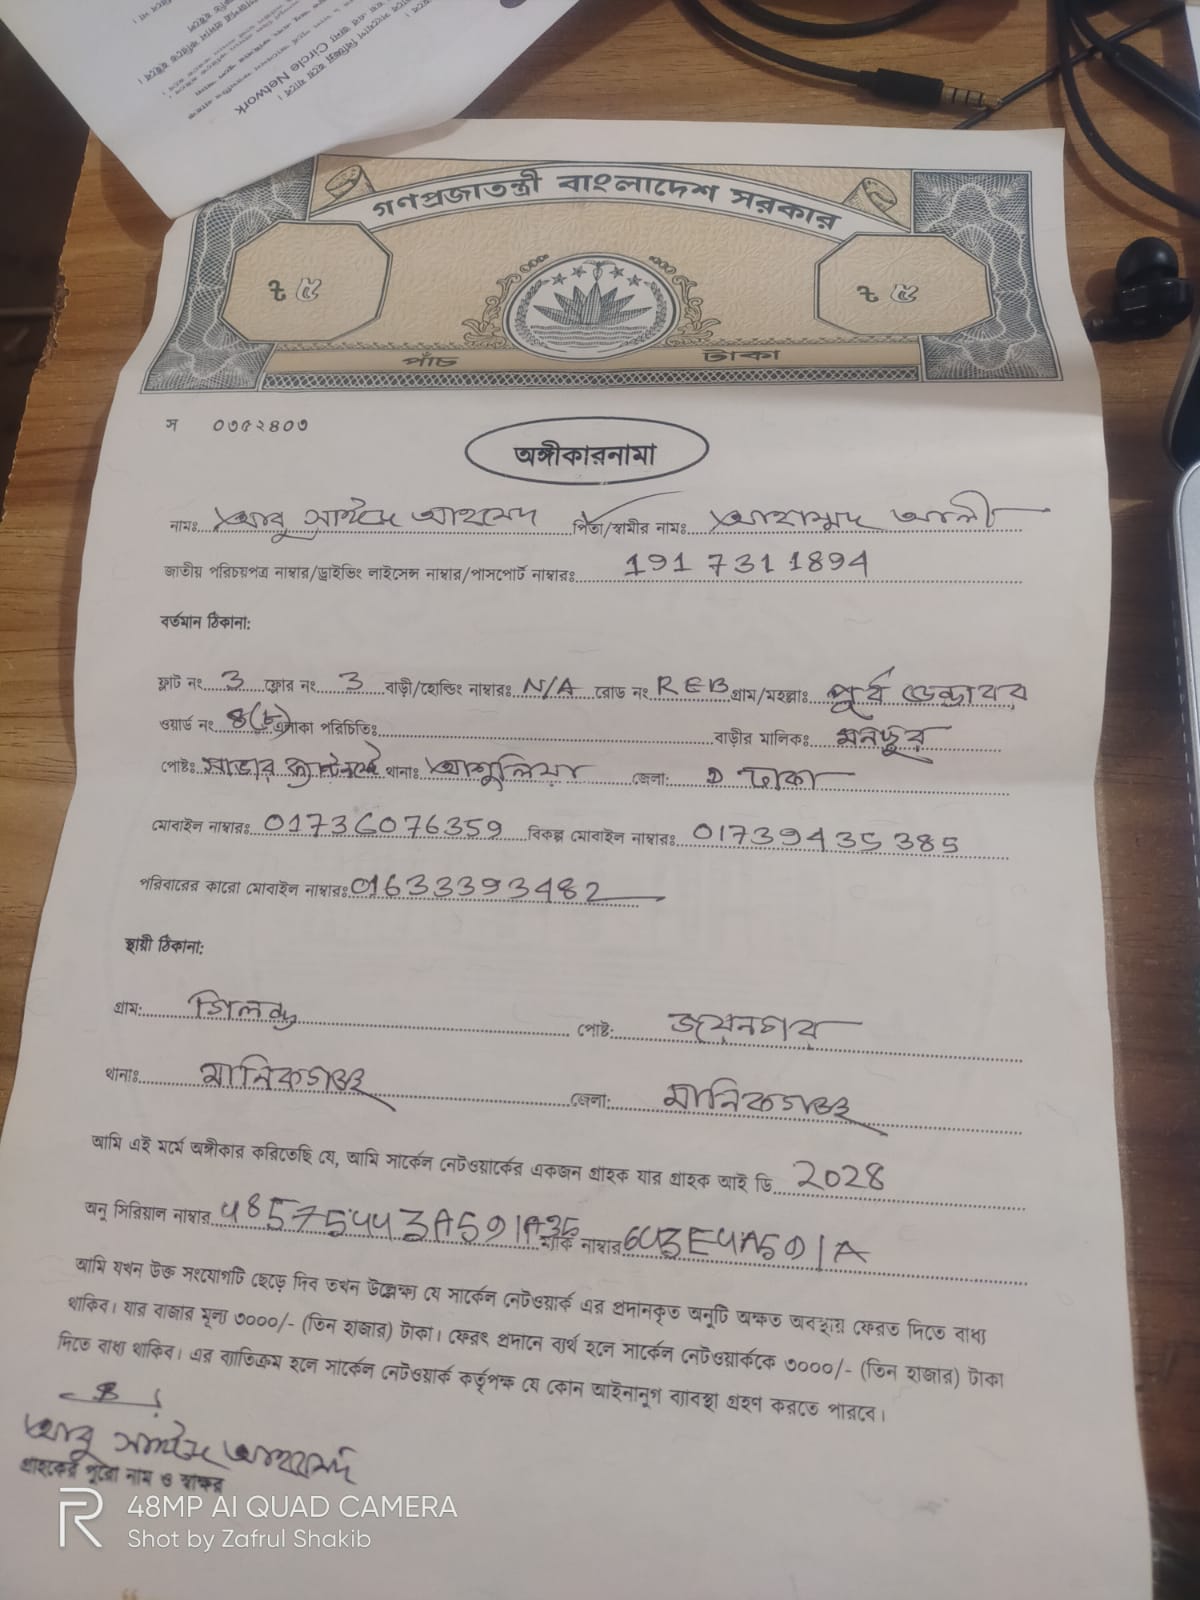 জন্য Circle Network
গণপ্রজাতন্ত্রী বাংলাদেশ সরকার
৳ ৫
৳ ৫
পাঁচ টাকা
স ০৩৫২৪০৩
অঙ্গীকারনামা
নামঃ আবু সাইদ আহমেদ পিতা/স্বামীর নামঃ আহাম্মদ আলী
জাতীয় পরিচয়পত্র নাম্বার/ড্রাইভিং লাইসেন্স নাম্বার/পাসপোর্ট নাম্বারঃ 191 7311894
বর্তমান ঠিকানা:
ফ্লাট নং 3 ফ্লোর নং 3 বাড়ী/হোল্ডিং নাম্বারঃ N/A রোড নং REB গ্রাম/মহল্লাঃ পূর্ব ডেন্ডাবর
ওয়ার্ড নং 8(৮) এলাকা পরিচিতিঃ বাড়ীর মালিকঃ মনজুর
পোষ্টঃ সাভার থানাঃ আশুলিয়া জেলা: ঢাকা
মোবাইল নাম্বারঃ 01736076359 বিকল্প মোবাইল নাম্বারঃ 01739435385
পরিবারের কারো মোবাইল নাম্বারঃ 01633393482
স্থায়ী ঠিকানা:
গ্রাম: পোষ্ট: জয়নগর
থানাঃ মানিকগঞ্জ জেলা: মানিকগঞ্জ
আমি এই মর্মে অঙ্গীকার করিতেছি যে, আমি সার্কেল নেটওয়ার্কের একজন গ্রাহক যার গ্রাহক আই ডি 2028
অনু সিরিয়াল নাম্বার ম্যাক নাম্বার
আমি যখন উক্ত সংযোগটি ছেড়ে দিব তখন উল্লেক্ষ্য যে সার্কেল নেটওয়ার্ক এর প্রদানকৃত অনুটি অক্ষত অবস্থায় ফেরত দিতে বাধ্য
থাকিব। যার বাজার মূল্য ৩০০০/- (তিন হাজার) টাকা। ফেরৎ প্রদানে ব্যর্থ হলে সার্কেল নেটওয়ার্ককে ৩০০০/- (তিন হাজার) টাকা
দিতে বাধ্য থাকিব। এর ব্যতিক্রম হলে সার্কেল নেটওয়ার্ক কর্তৃপক্ষ যে কোন আইনানুগ ব্যাবস্থা গ্রহণ করতে পারবে।
আবু সাইদ আহমেদ
গ্রাহকের পুরো নাম ও স্বাক্ষর
48MP AI QUAD CAMERA
Shot by Zafrul Shakib